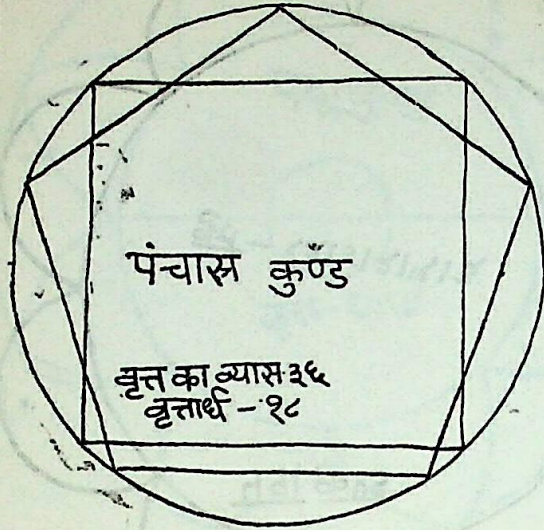 पंचास्र कुण्ड
वृत्त का व्यास-३६
वृत्तार्ध - १८